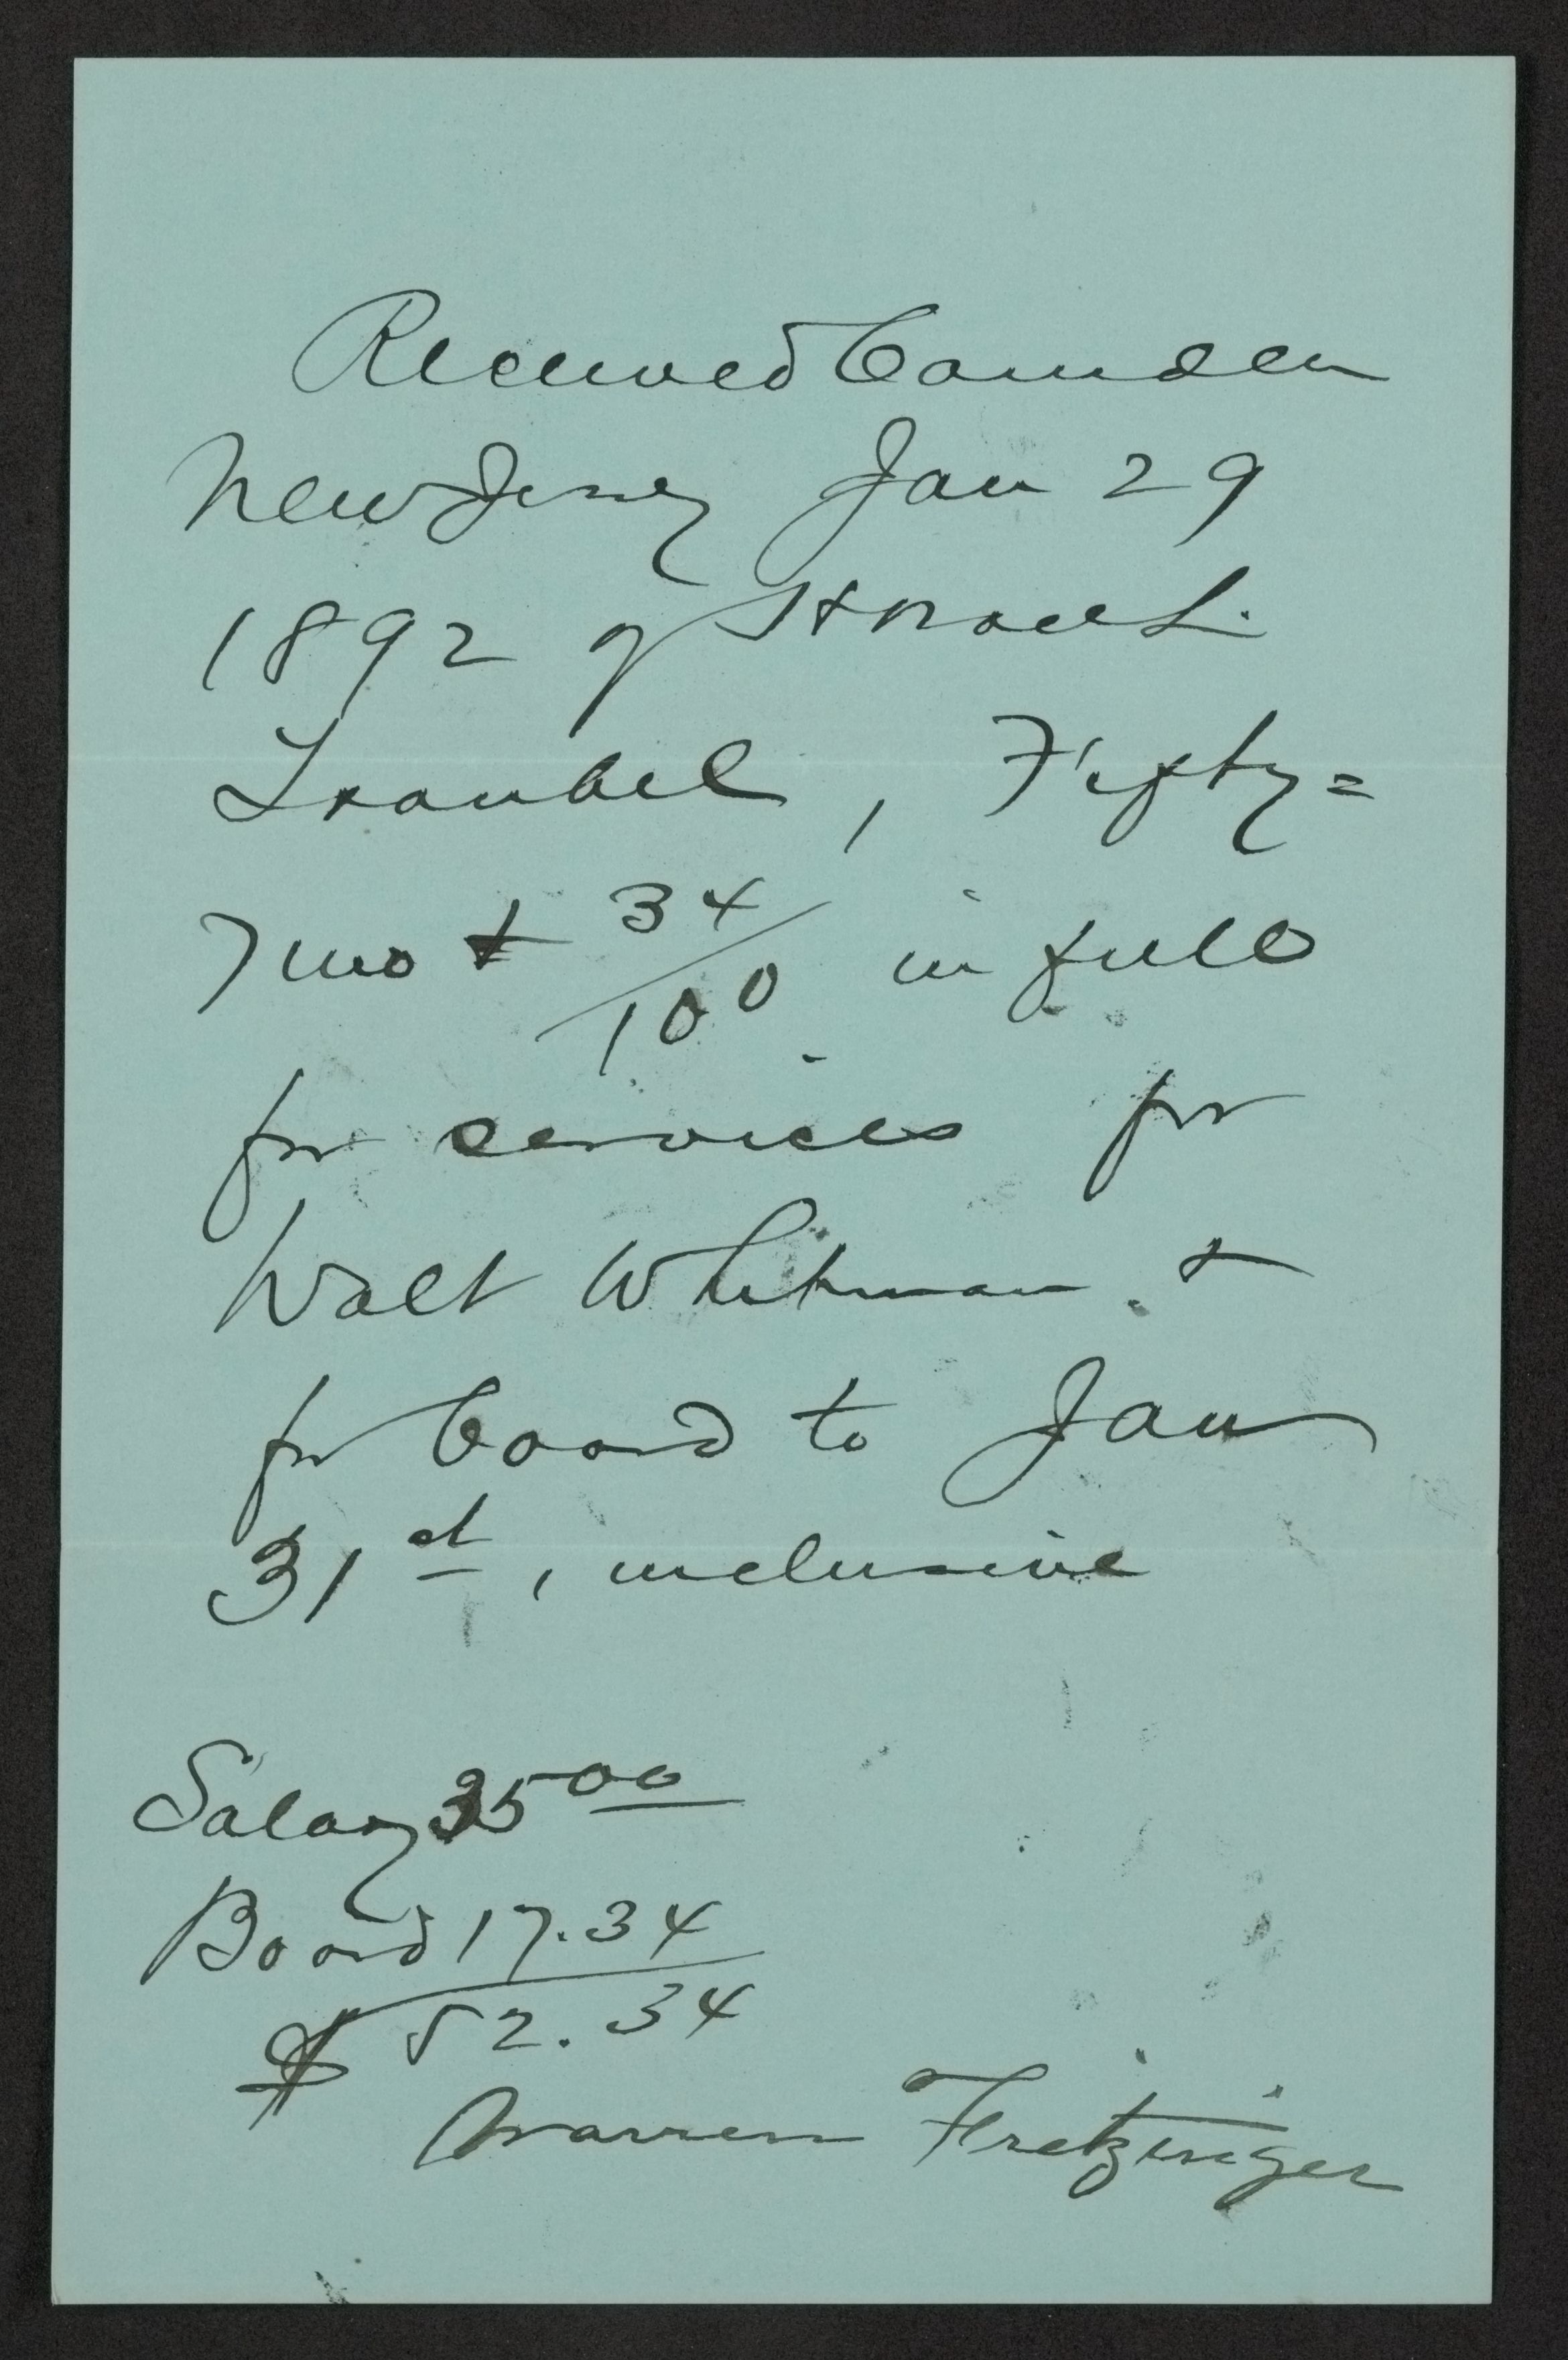 Received Camden
New Jersey Jan 29
1892 of Horace L.
Traubel, Fifty=
Two + 34/100 in full
for services for
Walt Whitman +
for board to Jan
31st, inclusive
Salary 35 00
Board 17.34
$ 52.34
Warren Fritzinger